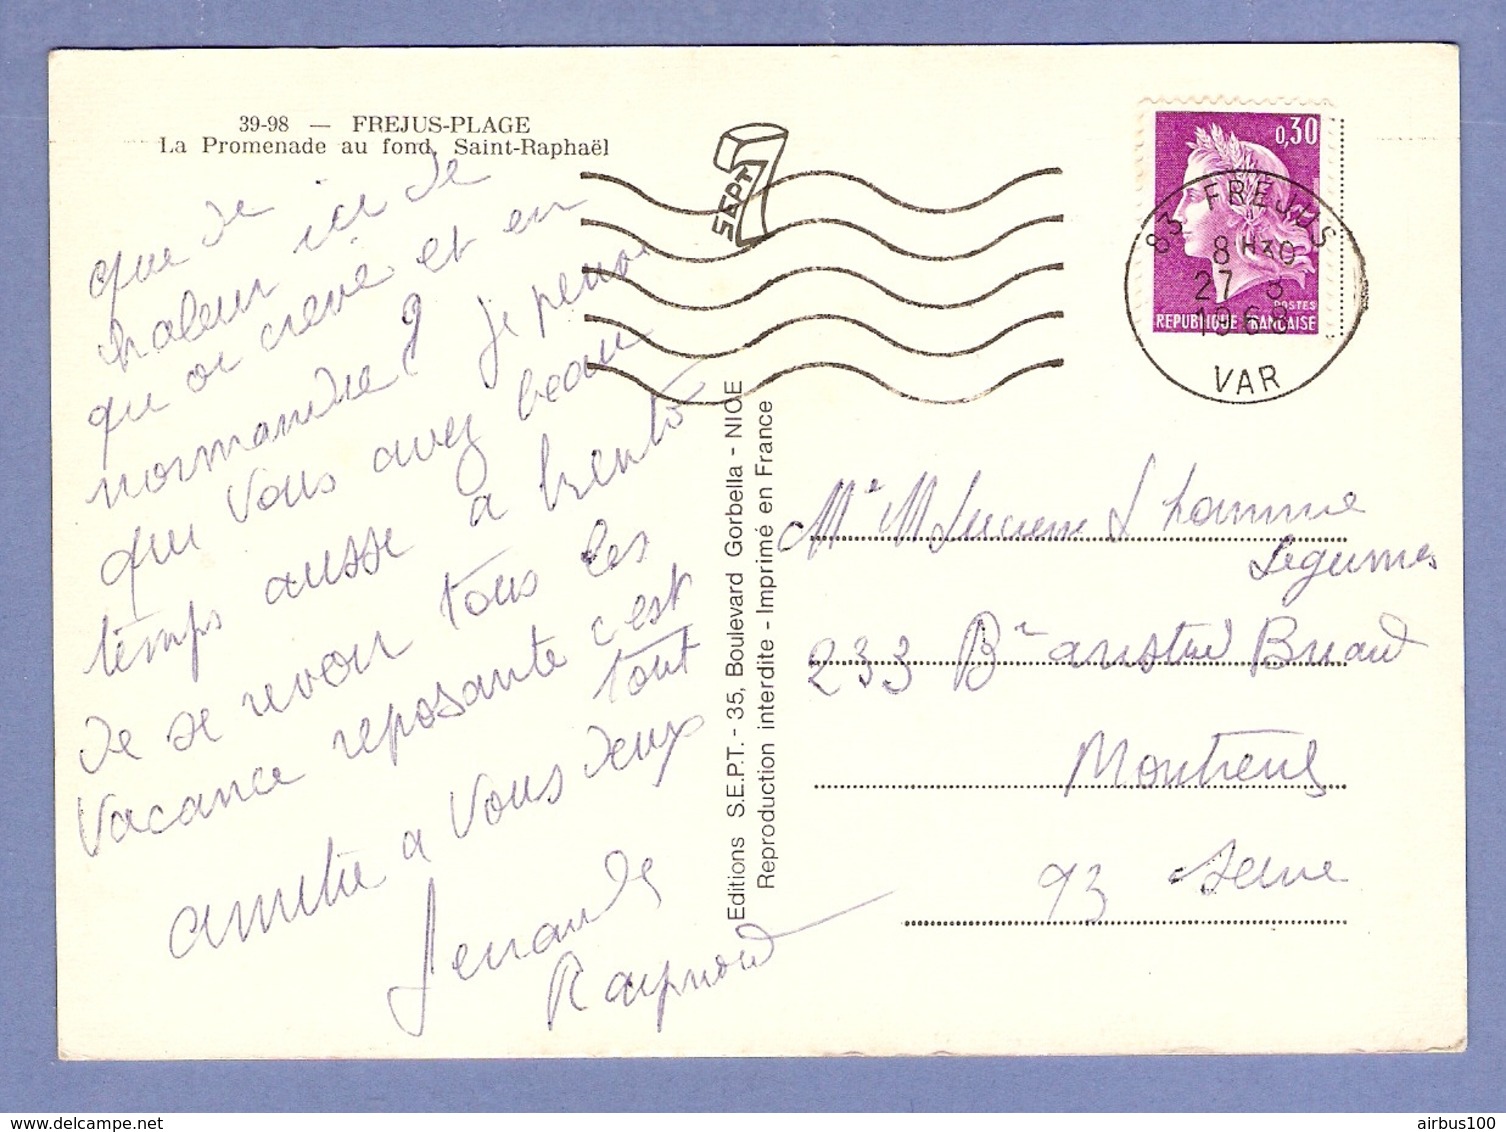 39-98 — FREJUS-PLAGE
La Promenade au fond, Saint-Raphaël
que de
haleur ici de
qu on creve et en
normandie? je pense
que vous avez beau
temps aussi a bientô
de se revoir tous les
vacance reposante c'est
tout
amitié a vous deux
Raymond
7 SEPT
0,30
POSTES
REPUBLIQUE FRANCAISE
83 FREJUS
8 H30
27 8
1968
VAR
Editions S.E.P.T. - 35, Boulevard Gorbella - NICE
Reproduction interdite - Imprimé en France
Me M Lucienne Lhomme
Legumes
233 Br aristid Briand
Montreuil
93 Seine
www.delcampe.net
airbus100